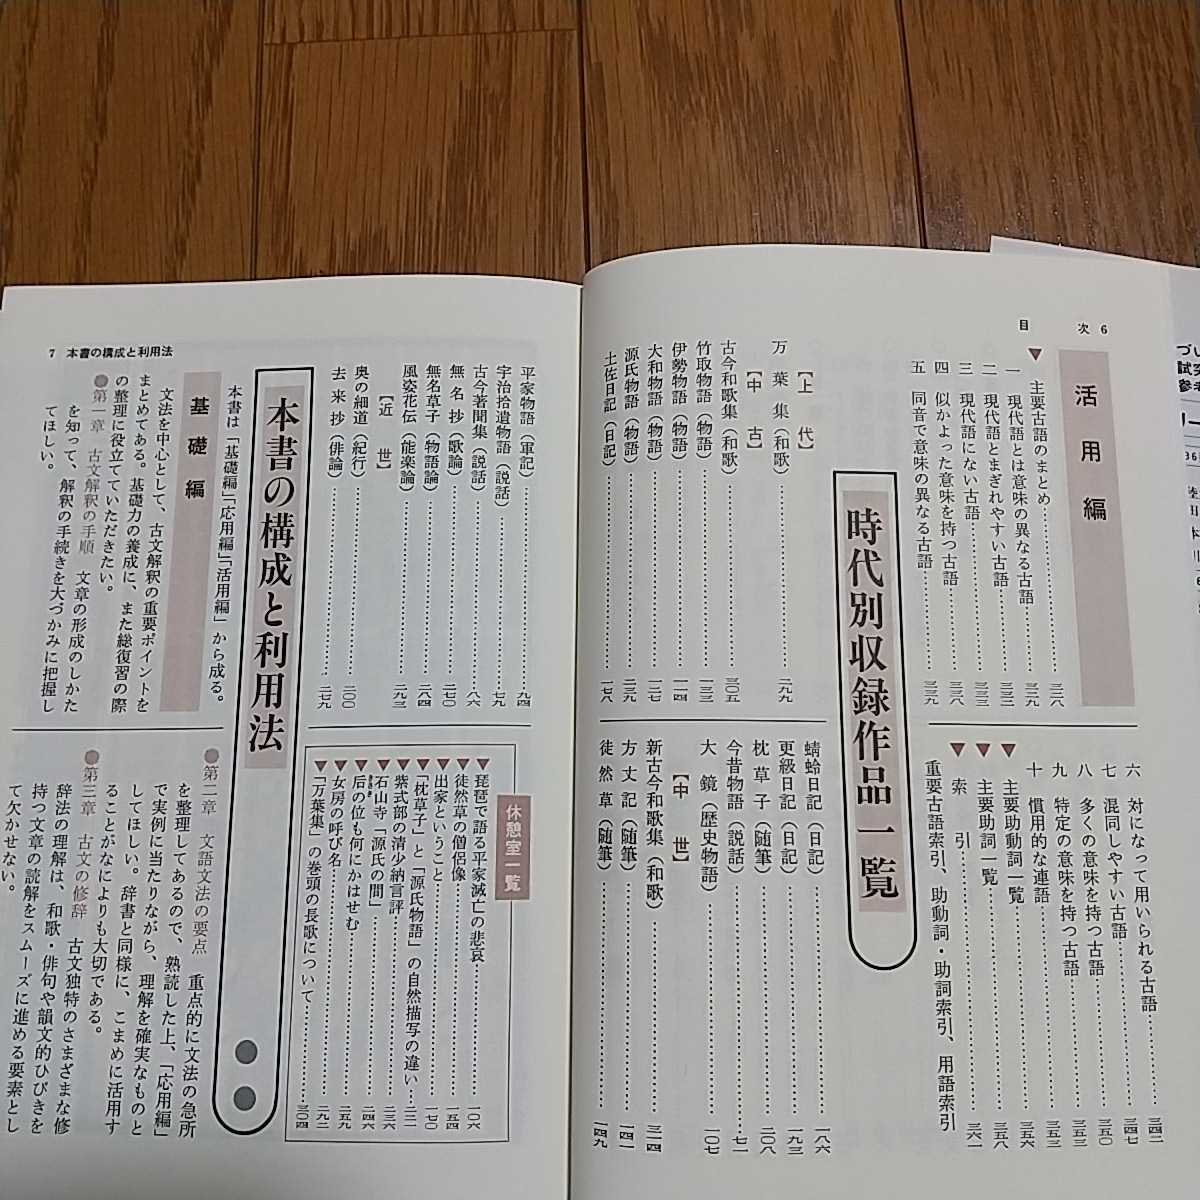 目 次 6
活用編
▼主要古語のまとめ……三二八
一 現代語とは意味の異なる古語……三二九
二 現代語とまぎれやすい古語……三三二
三 現代語にない古語……三三三
四 似かよった意味を持つ古語……三三八
五 同音で意味の異なる古語……三三九
六 対になって用いられる古語……三四二
七 混同しやすい古語……三四七
八 多くの意味を持つ古語……三五〇
九 特定の意味を持つ古語……三五三
十 慣用的な連語……三五三
▼主要助動詞一覧……三五五
▼主要助詞一覧……三五八
▼索 引……三六一
重要古語索引、助動詞・助詞索引、用語索引
時代別収録作品一覧
【上 代】
万 葉 集(和歌)……二九九
【中 古】
古今和歌集(和歌)……三〇五
竹取物語(物語)……一三三
伊勢物語(物語)……一一四
大和物語(物語)……一二七
源氏物語(物語)……二三九
土佐日記(日記)……一七八
蜻蛉日記(日記)……一八六
更級日記(日記)……一九三
枕 草 子(随筆)……二〇八
今昔物語(説話)……七一
大 鏡(歴史物語)……一〇七
【中 世】
新古今和歌集(和歌)……三一四
方 丈 記(随筆)……一四一
徒 然 草(随筆)……一四九
平家物語(軍記)……九四
宇治拾遺物語(説話)……七九
古今著聞集(説話)……八六
無 名 抄(歌論)……二七〇
無名草子(物語論)……二八四
風姿花伝(能楽論)……二九三
【近 世】
奥の細道(紀行)……二〇〇
去 来 抄(俳論)……二七九
休憩室一覧
▼琵琶で語る平家滅亡の悲哀……一〇六
▼徒然草の僧侶像……一五四
▼出家ということ……一七〇
▼「枕草子」と「源氏物語」の自然描写の違い……二三一
▼紫式部の清少納言評……二三六
▼石山寺「源氏の間」……二四六
▼后の位も何にかはせむ……二五九
▼女房の呼び名……二九二
▼「万葉集」の巻頭の長歌について……三〇四
7 本書の構成と利用法
本書の構成と利用法
本書は「基礎編」「応用編」「活用編」から成る。
基礎編
文法を中心として、古文解釈の重要ポイントを
まとめてある。基礎力の養成に、また総復習の際
の整理に役立てていただきたい。
●第一章 古文解釈の手順 文章の形成のしかた
を知って、解釈の手続きを大づかみに把握し
てほしい。
●第二章 文語文法の要点 重点的に文法の急所
を整理してあるので、熟読した上、「応用編」
で実例に当たりながら、理解を確実なものと
してほしい。辞書と同様に、こまめに活用す
ることがなによりも大切である。
●第三章 古文の修辞 古文独特のさまざまな修
辞法の理解は、和歌・俳句や韻文的ひびきを
持つ文章の読解をスムーズに進める要素とし
て欠かせない。